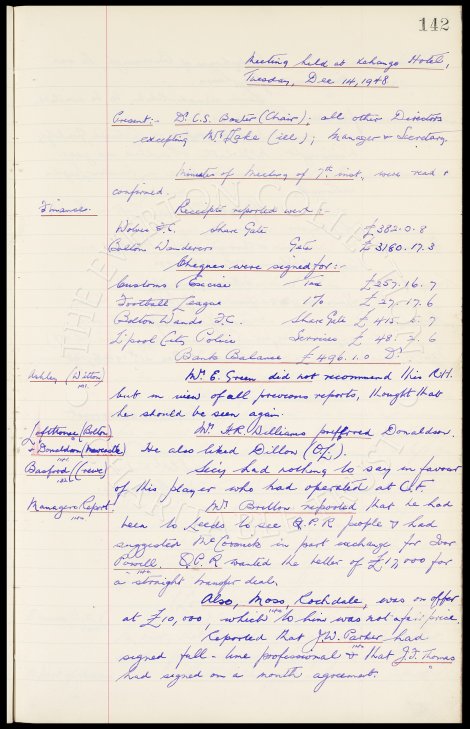 142
Meeting held at Exchange Hotel,
Tuesday, Dec 14, 1948
Present:- Dr. C.S. Baxter (Chair); all other Directors
excepting Mr Lake (ill); Manager & Secretary.
Minutes of Meeting of 7th inst, were read &
confirmed.
Finances. Receipts reported were:-
Wolves F.C. Share Gate £382.0.8
Bolton Wanderers Gate £3160.17.3
Cheques were signed for:-
Customs / Excise Tax £257.16.7
Football League 1% £27.17.6
Bolton Wands F.C. Share Gate £415. . 7
L'pool City Police Services £48. . 6
Bank Balance £496.1.0 Dr
Ashley (Witton) Mr. E. Green did not recommend this R.H.
but in view of all previous reports, thought that
he should be seen again.
Lofthouse (Bolton) Mr. H.R. Williams preferred Donaldson.
& Donaldson (Newcastle) He also liked Dillon (O/L).
Basford (Crewe) Secy had nothing to say in favour
of this player who had operated at C.F.
Managers Report. Mr Britton reported that he had
been to Leeds to see Q.P.R people & had
suggested McCormick in part exchange for Ivor
Powell. Q.P.R wanted the latter of £17,000 for
a straight transfer deal.
Also, Moss, Rochdale, was on offer
at £10,000, which to him was not a price.
Reported that J.W. Parker had
signed full-time professional & that J.F. Thomas
had signed on a month agreement.